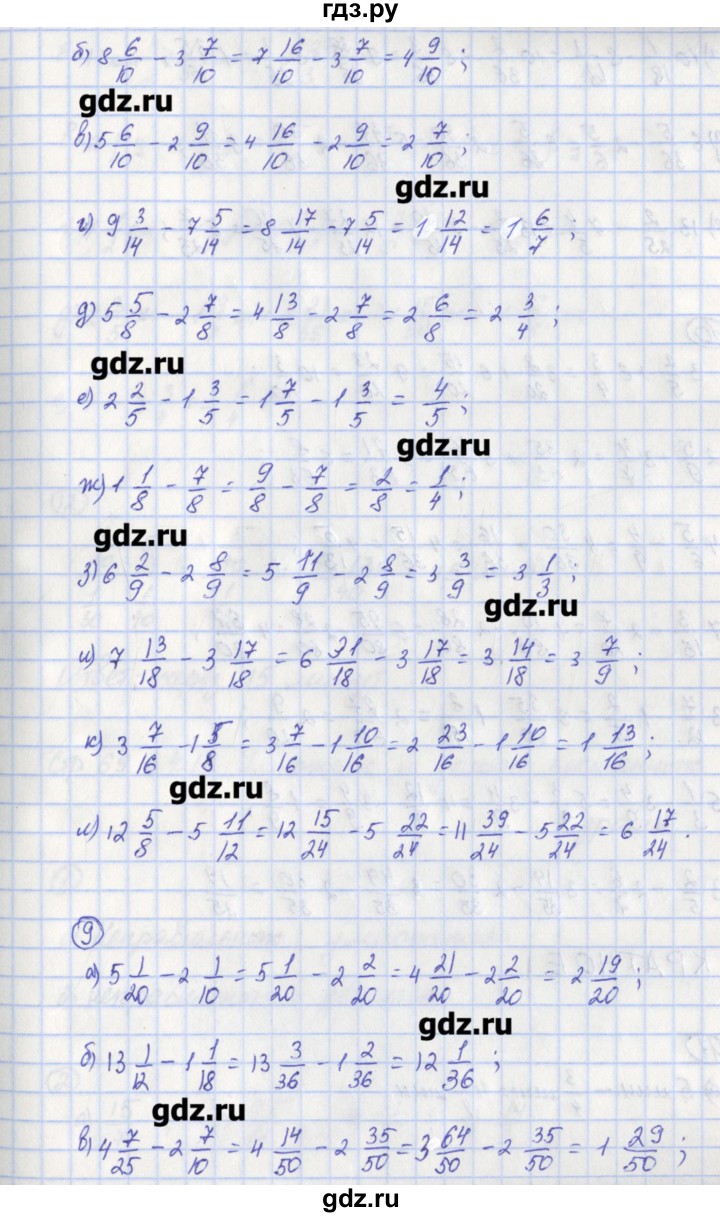 гдз.ру
б) 8 6/10 - 3 7/10 = 7 16/10 - 3 7/10 = 4 9/10 ;
gdz.ru
в) 5 6/10 - 2 9/10 = 4 16/10 - 2 9/10 = 2 7/10 ;
gdz.ru
г) 9 3/14 - 7 5/14 = 8 17/14 - 7 5/14 = 1 12/14 = 1 6/7 ;
д) 5 5/8 - 2 7/8 = 4 13/8 - 2 7/8 = 2 6/8 = 2 3/4 ;
gdz.ru
е) 2 2/5 - 1 3/5 = 1 7/5 - 1 3/5 = 4/5 ;
gdz.ru
ж) 1 1/8 - 7/8 = 9/8 - 7/8 = 2/8 = 1/4 ;
gdz.ru
з) 6 2/9 - 2 8/9 = 5 11/9 - 2 8/9 = 3 3/9 = 3 1/3 ;
gdz.ru
и) 7 13/18 - 3 17/18 = 6 31/18 - 3 17/18 = 3 14/18 = 3 7/9 ;
к) 3 7/16 - 1 5/8 = 3 7/16 - 1 10/16 = 2 23/16 - 1 10/16 = 1 13/16 ;
gdz.ru
л) 12 5/8 - 5 11/12 = 12 15/24 - 5 22/24 = 11 39/24 - 5 22/24 = 6 17/24 .
9
а) 5 1/20 - 2 1/10 = 5 1/20 - 2 2/20 = 4 21/20 - 2 2/20 = 2 19/20 ;
gdz.ru
б) 13 1/12 - 1 1/18 = 13 3/36 - 1 2/36 = 12 1/36 ;
gdz.ru
в) 4 7/25 - 2 7/10 = 4 14/50 - 2 35/50 = 3 64/50 - 2 35/50 = 1 29/50 ;
gdz.ru